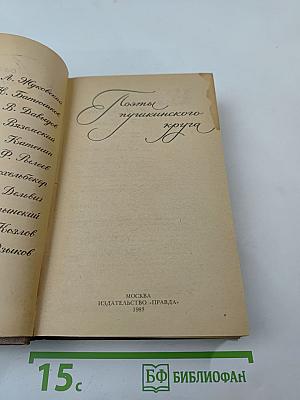 А. Жуковский
К. Батюшков
В. Давыдов
Вяземский
Катенин
Ф. Рылеев
Дельвиг
Козлов
Языков
Поэты
пушкинского
круга
МОСКВА
ИЗДАТЕЛЬСТВО «ПРАВДА»
1983
15с
БФ БИБЛИОФАН